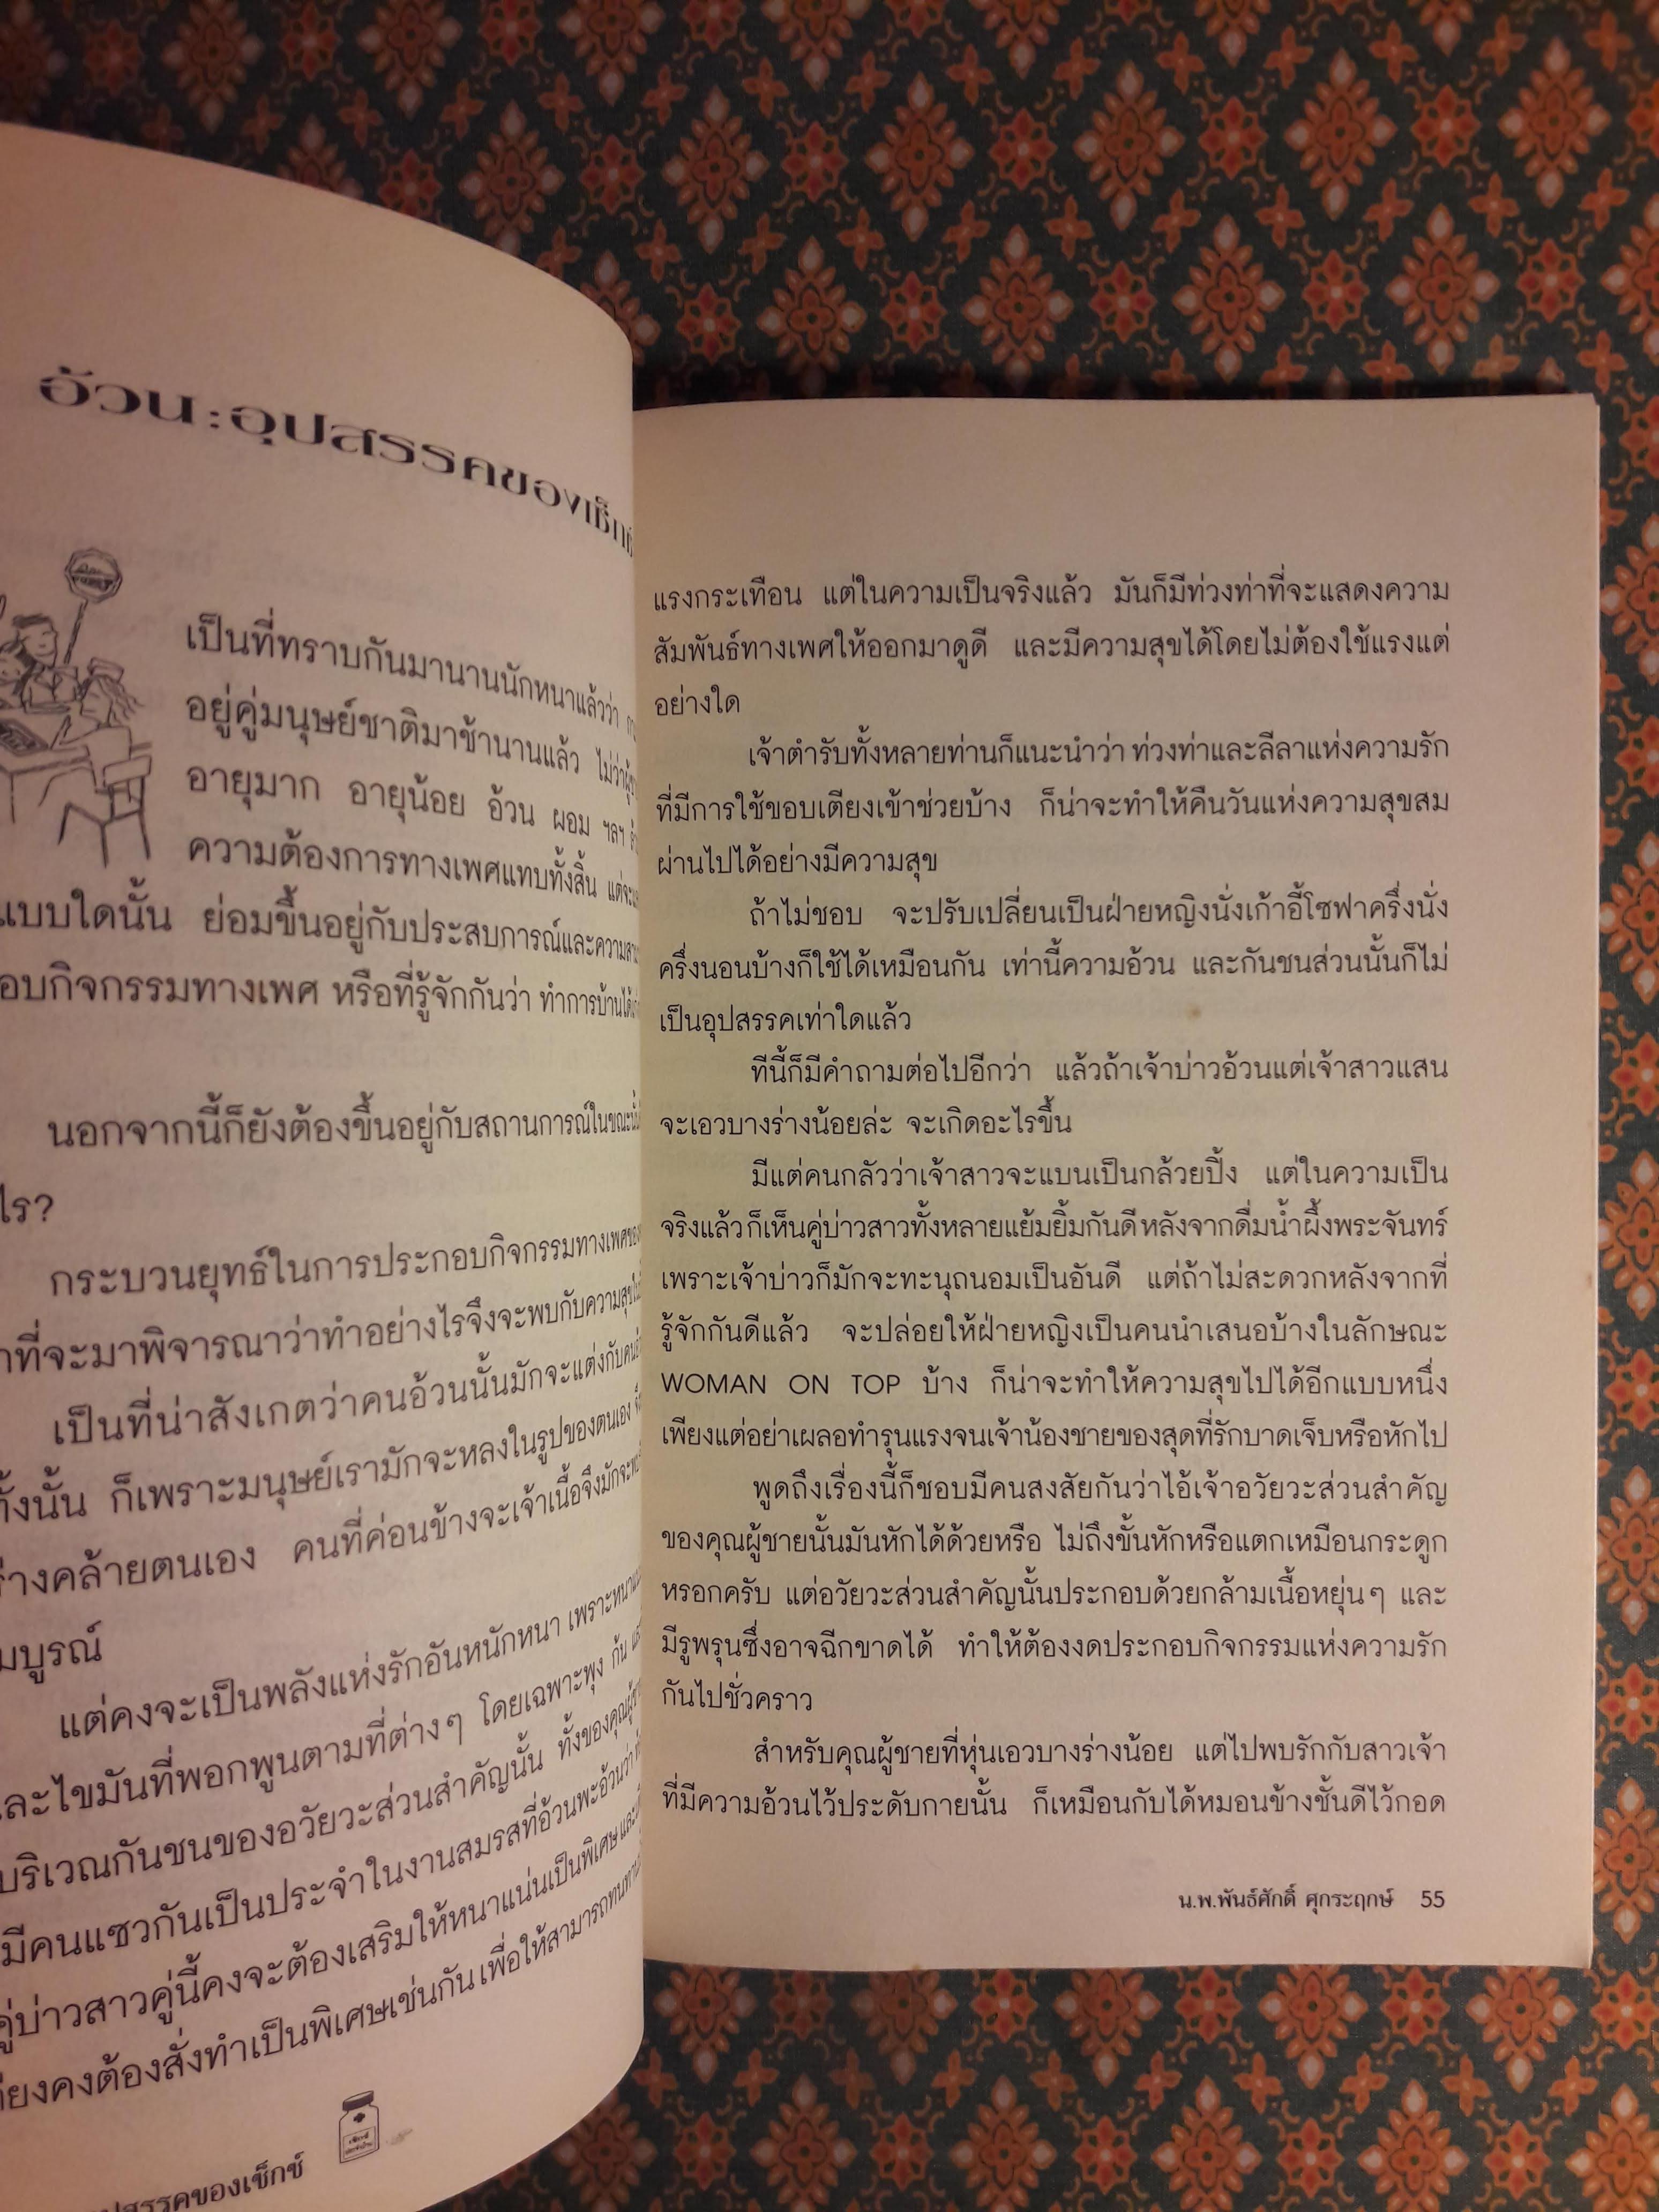 อ้วน : อุปสรรคของเซ็กซ์
เป็นที่ทราบกันมานานนักหนาแล้วว่า
อยู่คู่มนุษย์ชาติมาช้านานแล้ว ไม่ว่า
อายุมาก อายุน้อย อ้วน ผอม ฯลฯ
ความต้องการทางเพศแทบทั้งสิ้น
แบบใดนั้น ย่อมขึ้นอยู่กับประสบการณ์และ
กิจกรรมทางเพศ หรือที่รู้จักกันว่า ทำการบ้าน
นอกจากนี้ก็ยังต้องขึ้นอยู่กับสถานการณ์ในขณะนั้น
ไร?
กระบวนยุทธ์ในการประกอบกิจกรรมทางเพศ
ที่จะมาพิจารณาว่าทำอย่างไรจึงจะพบกับความสุข
เป็นที่น่าสังเกตว่าคนอ้วนนั้นมักจะแต่งกับคน
ทั้งนั้น ก็เพราะมนุษย์เรามักจะหลงในรูปของตนเอง
ร่างคล้ายตนเอง คนที่ค่อนข้างจะเจ้าเนื้อจึงมักจะ
มบูรณ์
แต่คงจะเป็นพลังแห่งรักอันหนักหนา เพราะ
และไขมันที่พอกพูนตามที่ต่างๆ โดยเฉพาะพุง ก้น
บริเวณกันชนของอวัยวะส่วนสำคัญนั้น ทั้งของ
มีคนแซวกันเป็นประจำในงานสมรสที่อ้วนพะอ้วนว่า
คู่บ่าวสาวคู่นี้คงจะต้องเสริมให้หนาแน่นเป็นพิเศษ
ตียงคงต้องสั่งทำเป็นพิเศษเช่นกัน เพื่อให้สามารถ
ปสรรคของเซ็กซ์
แรงกระเทือน แต่ในความเป็นจริงแล้ว มันก็มีท่วงท่าที่จะแสดงความ
สัมพันธ์ทางเพศให้ออกมาดูดี และมีความสุขได้โดยไม่ต้องใช้แรงแต่
อย่างใด
เจ้าตำรับทั้งหลายท่านก็แนะนำว่า ท่วงท่าและลีลาแห่งความรัก
ที่มีการใช้ขอบเตียงเข้าช่วยบ้าง ก็น่าจะทำให้คืนวันแห่งความสุขสม
ผ่านไปได้อย่างมีความสุข
ถ้าไม่ชอบ จะปรับเปลี่ยนเป็นฝ่ายหญิงนั่งเก้าอี้โซฟาครึ่งนั่ง
ครึ่งนอนบ้างก็ใช้ได้เหมือนกัน เท่านี้ความอ้วน และกันชนส่วนนั้นก็ไม่
เป็นอุปสรรคเท่าใดแล้ว
ทีนี้ก็มีคำถามต่อไปอีกว่า แล้วถ้าเจ้าบ่าวอ้วนแต่เจ้าสาวแสน
จะเอวบางร่างน้อยล่ะ จะเกิดอะไรขึ้น
มีแต่คนกลัวว่าเจ้าสาวจะแบนเป็นกล้วยปิ้ง แต่ในความเป็น
จริงแล้วก็เห็นคู่บ่าวสาวทั้งหลายแย้มยิ้มกันดีหลังจากดื่มน้ำผึ้งพระจันทร์
เพราะเจ้าบ่าวก็มักจะทะนุถนอมเป็นอันดี แต่ถ้าไม่สะดวกหลังจากที่
รู้จักกันดีแล้ว จะปล่อยให้ฝ่ายหญิงเป็นคนนำเสนอบ้างในลักษณะ
WOMAN ON TOP บ้าง ก็น่าจะทำให้ความสุขไปได้อีกแบบหนึ่ง
เพียงแต่อย่าเผลอทำรุนแรงจนเจ้าน้องชายของสุดที่รักบาดเจ็บหรือหักไป
พูดถึงเรื่องนี้ก็ชอบมีคนสงสัยกันว่าไอ้เจ้าอวัยวะส่วนสำคัญ
ของคุณผู้ชายนั้นมันหักได้ด้วยหรือ ไม่ถึงขั้นหักหรือแตกเหมือนกระดูก
หรอกครับ แต่อวัยวะส่วนสำคัญนั้นประกอบด้วยกล้ามเนื้อหยุ่นๆ และ
มีรูพรุนซึ่งอาจฉีกขาดได้ ทำให้ต้องงดประกอบกิจกรรมแห่งความรัก
กันไปชั่วคราว
สำหรับคุณผู้ชายที่หุ่นเอวบางร่างน้อย แต่ไปพบรักกับสาวเจ้า
ที่มีความอ้วนไว้ประดับกายนั้น ก็เหมือนกับได้หมอนข้างชั้นดีไว้กอด
น.พ.พันธ์ศักดิ์ ศุกระฤกษ์ 55